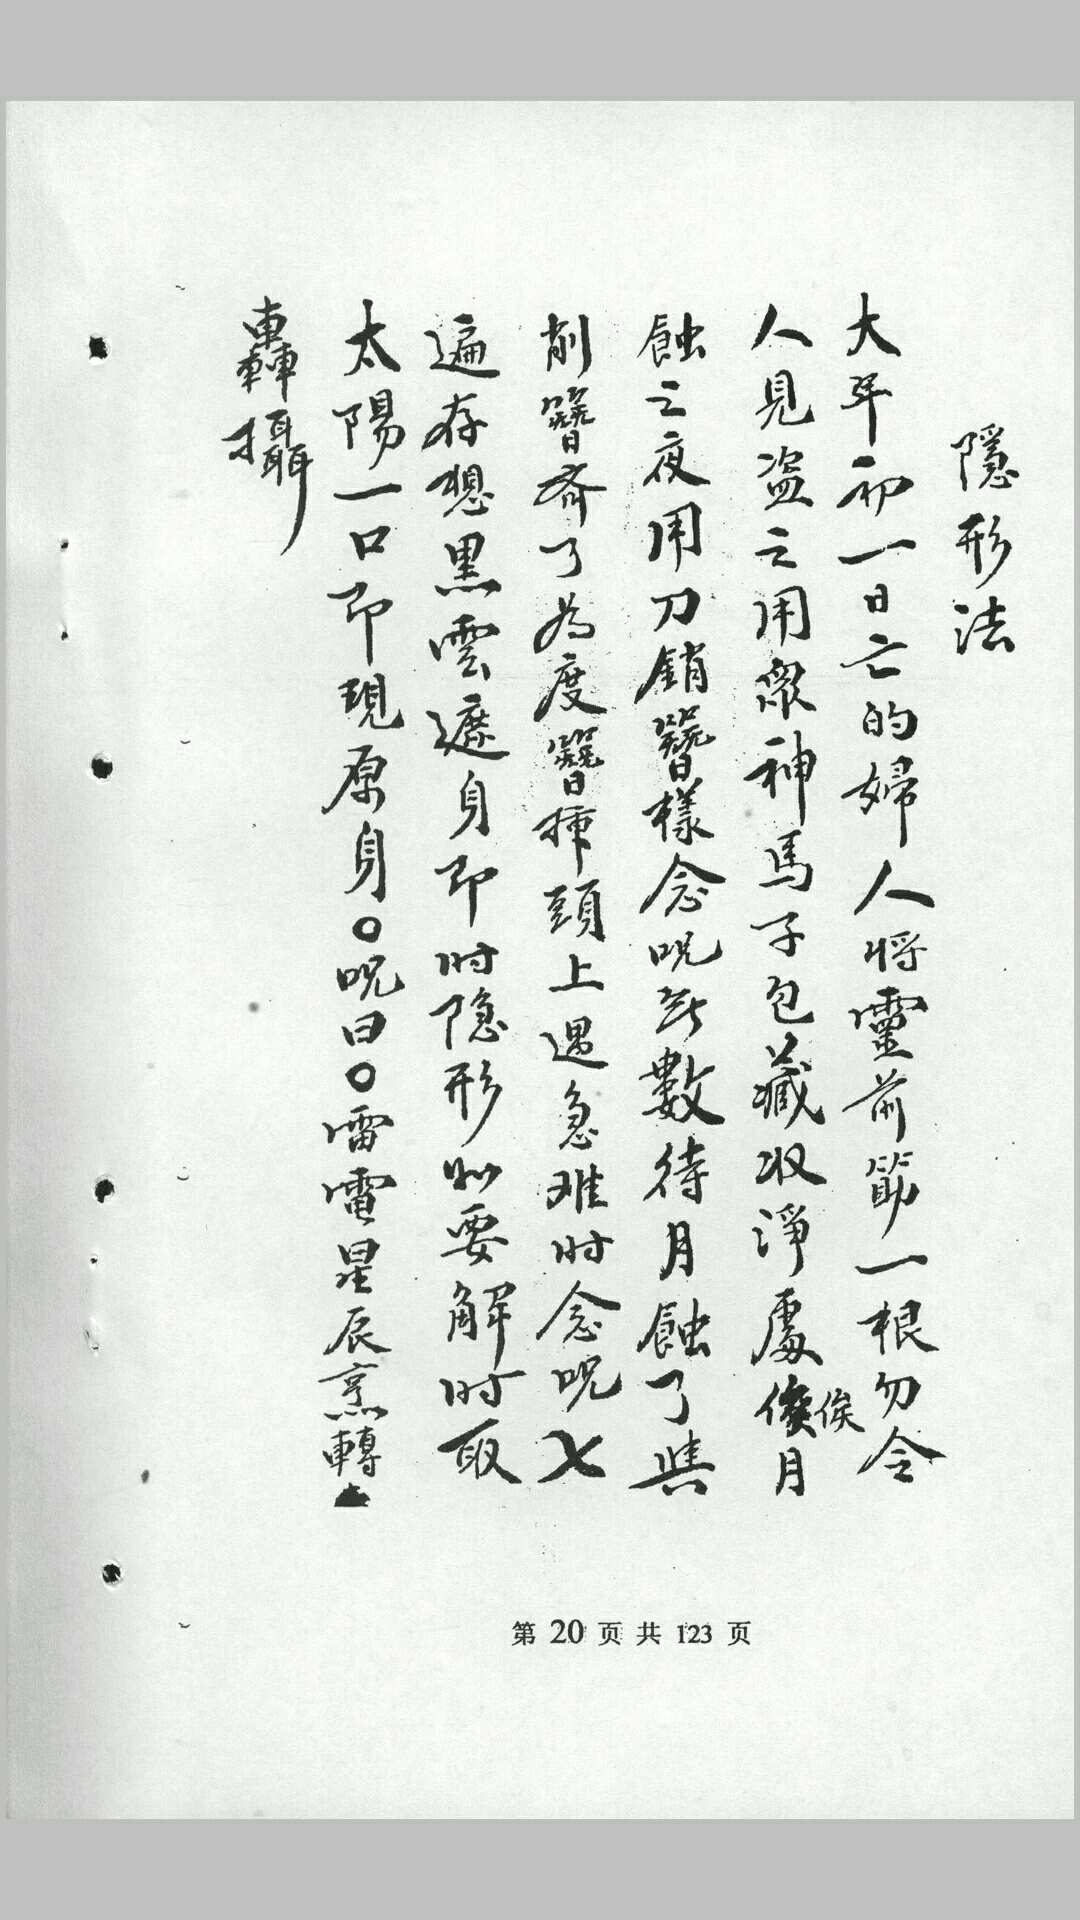 隱形法
大年初一日亡的婦人將靈前筯一根勿令
人見盜之用眾神馬子包藏收淨處候俟月
蝕之夜用刀銷簪樣念呪無數待月蝕了與
削簪齊了為度簪插頭上遇急难时念呪七
遍存想黑雲遮身即时隐形如要解时取
太陽一口即現原身○呪曰○雷電星辰 轉
轟攝
第 20 页 共 123 页